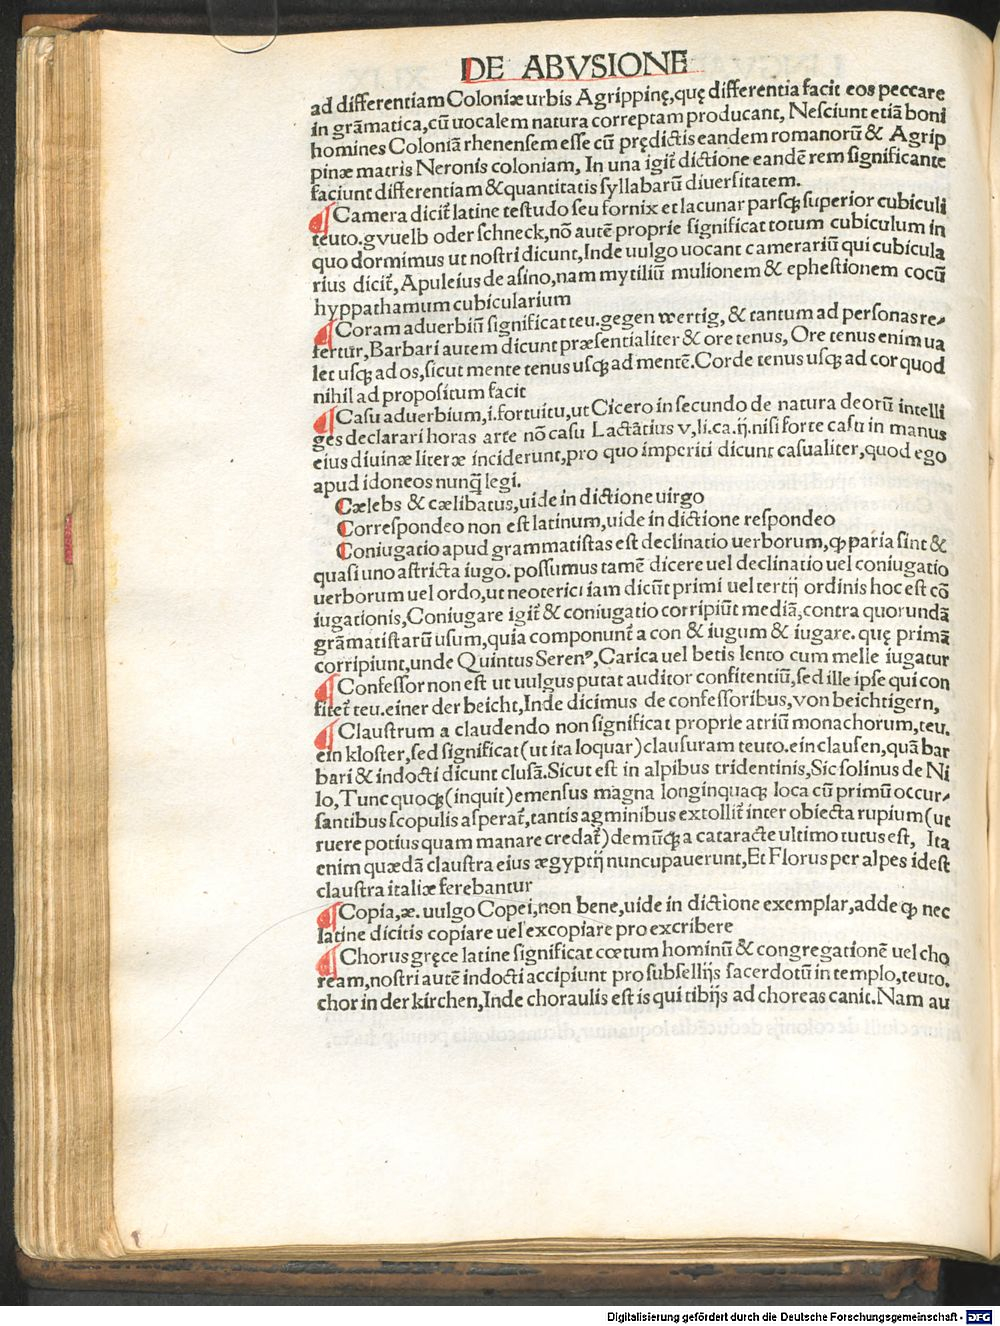 DE ABVSIONE
ad differentiam Coloniæ urbis Agrippinę, quę differentia facit eos peccare
in grãmatica, cũ uocalem natura correptam producant, Nesciunt etiã boni
homines Coloniã rhenensem esse cũ prędictis eandem romanorũ & Agrip
pinæ matris Neronis coloniam, In una igit᷑ dictione eandẽ rem significante
faciunt differentiam & quantitatis syllabarũ diuersitatem.
¶ Camera dicit᷑ latine testudo seu fornix et lacunar parsꝗ superior cubiculi
teuto. gvuelb oder schneck, nõ autẽ proprie significat totum cubiculum in
quo dormimus ut nostri dicunt, Inde uulgo uocant camerariũ qui cubicula
rius dicit᷑, Apuleius de asino, nam mytiliũ mulionem & ephestionem cocũ
hyppathamum cubicularium
¶ Coram aduerbiũ significat teu. gegen wertig, & tantum ad personas re⸗
fertur, Barbari autem dicunt præsentialiter & ore tenus, Ore tenus enim ua
let usꝗ ad os, sicut mente tenus usꝗ ad mentẽ. Corde tenus usꝗ ad cor quod
nihil ad propositum facit
¶ Casu aduerbium, i. fortuitu, ut Cicero in secundo de natura deorũ intelli
ges declarari horas arte nõ casu Lactãtius v, li. ca. ij. nisi forte casu in manus
eius diuinæ literæ inciderunt, pro quo imperiti dicunt casualiter, quod ego
apud idoneos nunq̃ legi.
Cælebs & cælibatus, uide in dictione uirgo
Correspondeo non est latinum, uide in dictione respondeo
Coniugatio apud grammatistas est declinatio uerborum, ꝙ paria sint &
quasi uno astricta iugo. possumus tamẽ dicere uel declinatio uel coniugatio
uerborum uel ordo, ut neoterici iam dicũt primi uel tertij ordinis hoc est cõ
iugationis, Coniugare igit᷑ & coniugatio corripiũt mediã, contra quorundã
grãmatistarũ usum, quia componunt᷑ a con & iugum & iugare. quę primã
corripiunt, unde Quintus Serenꝰ, Carica uel betis lento cum melle iugatur
¶ Confessor non est ut uulgus putat auditor confitentiũ, sed ille ipse qui con
fitet᷑ teu. einer der beicht, Inde dicimus de confessoribus, von beichtigern,
¶ Claustrum a claudendo non significat proprie atriũ monachorum, teu.
ein kloster, sed significat (ut ita loquar) clausuram teuto. ein clausen, quã bar
bari & indocti dicunt clusã. Sicut est in alpibus tridentinis, Sic solinus de Ni
lo, Tunc quoꝗ (inquit) emensus magna longinquaꝗ loca cũ primũ occur⸗
santibus scopulis asperat᷑, tantis agminibus extollit᷑ inter obiecta rupium (ut
ruere potius quam manare credat᷑) demũꝗ a cataracte ultimo tutus est, Ita
enim quædã claustra eius ægyptij nuncupauerunt, Et Florus per alpes idest
claustra italiæ ferebantur
¶ Copia, æ. uulgo Copei, non bene, uide in dictione exemplar, adde ꝙ nec
latine dicitis copiare uel excopiare pro excribere
¶ Chorus gręce latine significat cœtum hominũ & congregationẽ uel cho
ream, nostri autẽ indocti accipiunt pro subsellijs sacerdotũ in templo, teuto.
chor in der kirchen, Inde choraulis est is qui tibijs ad choreas canit. Nam au
Digitalisierung gefördert durch die Deutsche Forschungsgemeinschaft - DFG